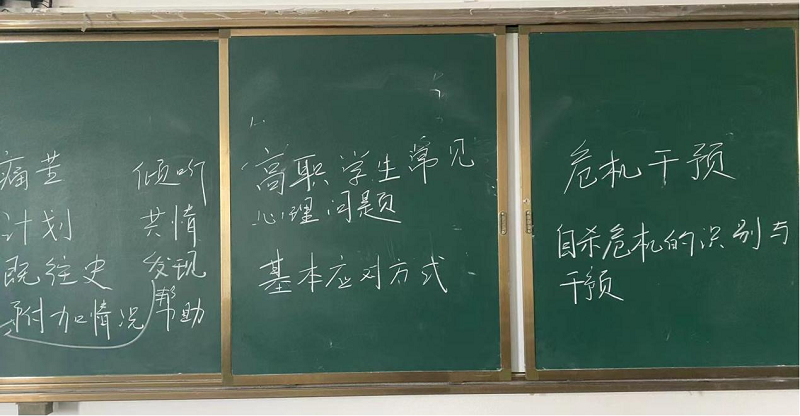 痛苦 倾听
计划 共情
既往史 发现
附加情况 帮助
高职学生常见
心理问题
基本应对方式
危机干预
自杀危机的识别与
干预